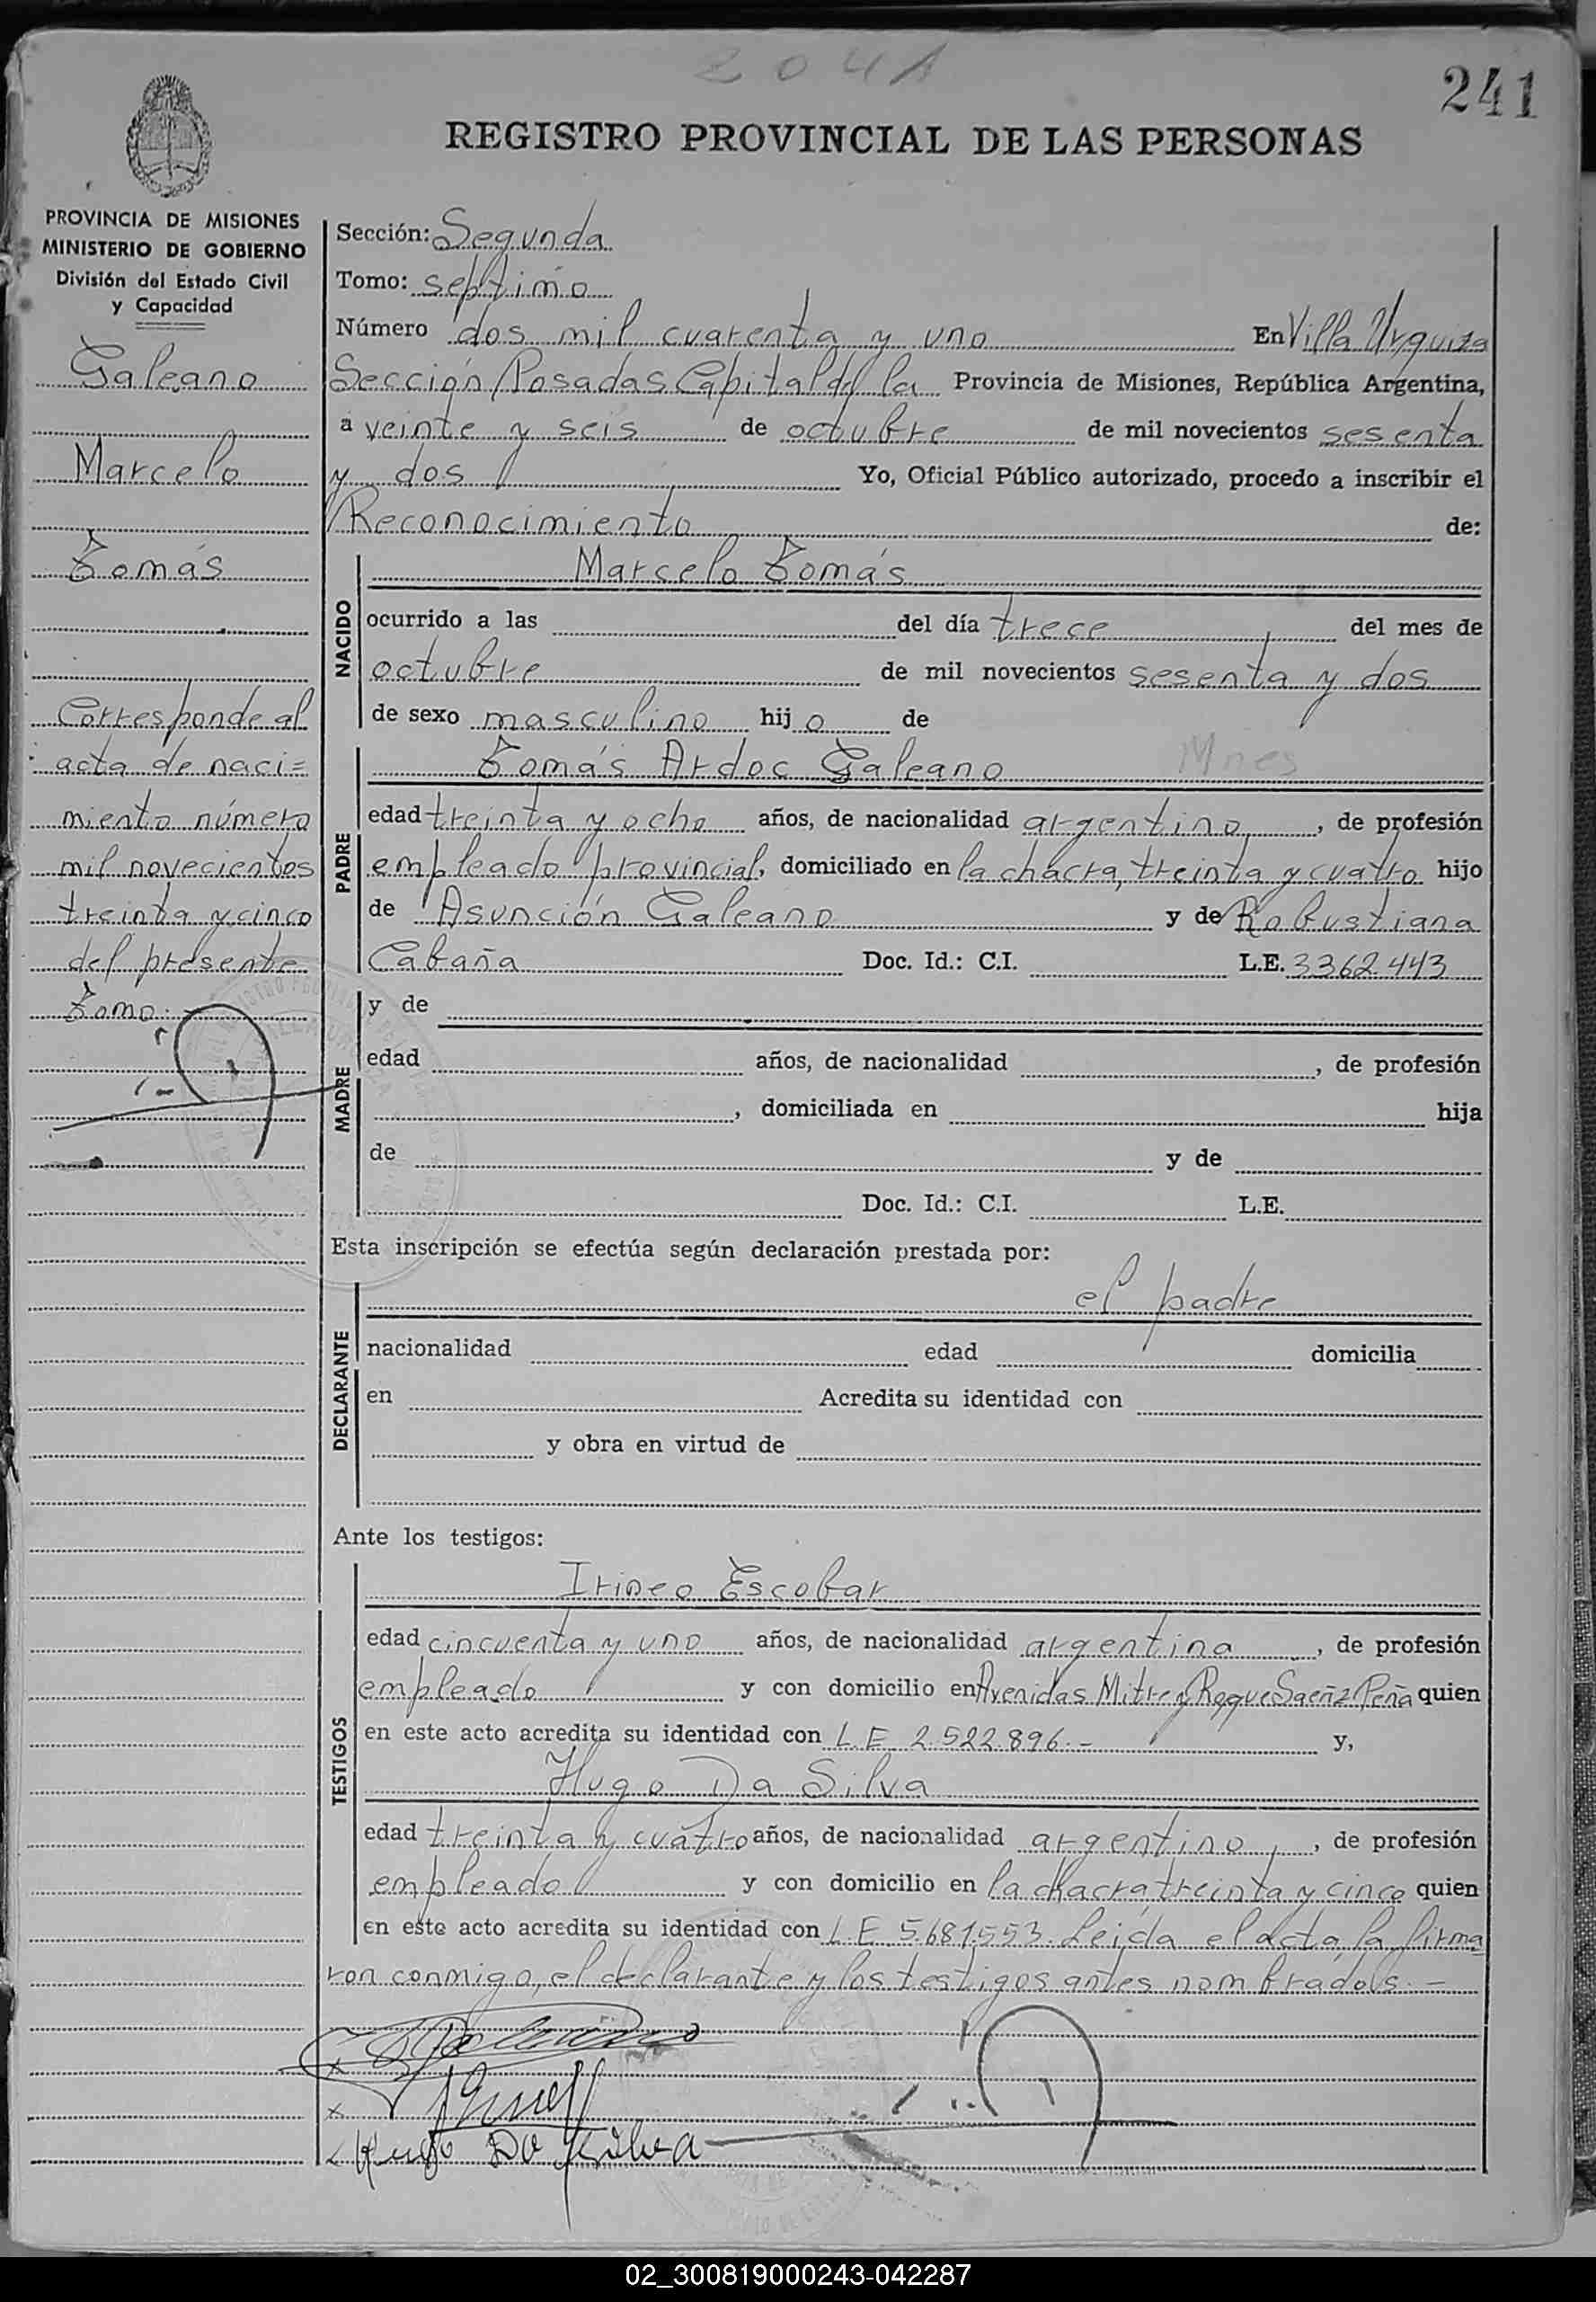 2041
241
REGISTRO PROVINCIAL DE LAS PERSONAS
PROVINCIA DE MISIONES
MINISTERIO DE GOBIERNO
División del Estado Civil
y Capacidad
Galeano
Marcelo
Tomás
Corresponde al
acta de naci=
miento número
mil novecientos
treinta y cinco
del presente
Tomo.
Sección: Segunda
Tomo: septimo
Número dos mil cuarenta y uno En Villa Urquiza
Sección Posadas Capital de la Provincia de Misiones, República Argentina,
a veinte y seis de octubre de mil novecientos sesenta
y dos Yo, Oficial Público autorizado, procedo a inscribir el
Reconocimiento de:
NACIDO
Marcelo Tomás
ocurrido a las del día trece del mes de
octubre de mil novecientos sesenta y dos
de sexo masculino hijo de
PADRE
Tomás Ardoc Galeano Mnes
edad treinta y ocho años, de nacionalidad argentino, de profesión
empleado provincial, domiciliado en la chacra, treinta y cuatro hijo
de Asunción Galeano y de Robustiana
Cabaña Doc. Id.: C.I. L.E. 3362.443
MADRE
y de
edad años, de nacionalidad , de profesión
, domiciliada en hija
de y de
Doc. Id.: C.I. L.E.
Esta inscripción se efectúa según declaración prestada por:
DECLARANTE
el padre
nacionalidad edad domicilia
en Acredita su identidad con
y obra en virtud de
Ante los testigos:
TESTIGOS
Irineo Escobar
edad cincuenta y uno años, de nacionalidad argentina, de profesión
empleado y con domicilio en Avenidas Mitre y Roque Saeñz Peña quien
en este acto acredita su identidad con L.E 2.522.896.- y,
Hugo Da Silva
edad treinta y cuatro años, de nacionalidad argentino, de profesión
empleado y con domicilio en la chacra treinta y cinco quien
en este acto acredita su identidad con L.E 5.681.553. Leida el acta, la firma
ron conmigo, el declarante y los testigos antes nombrados.-
Hugo Da Silva
02_300819000243-042287